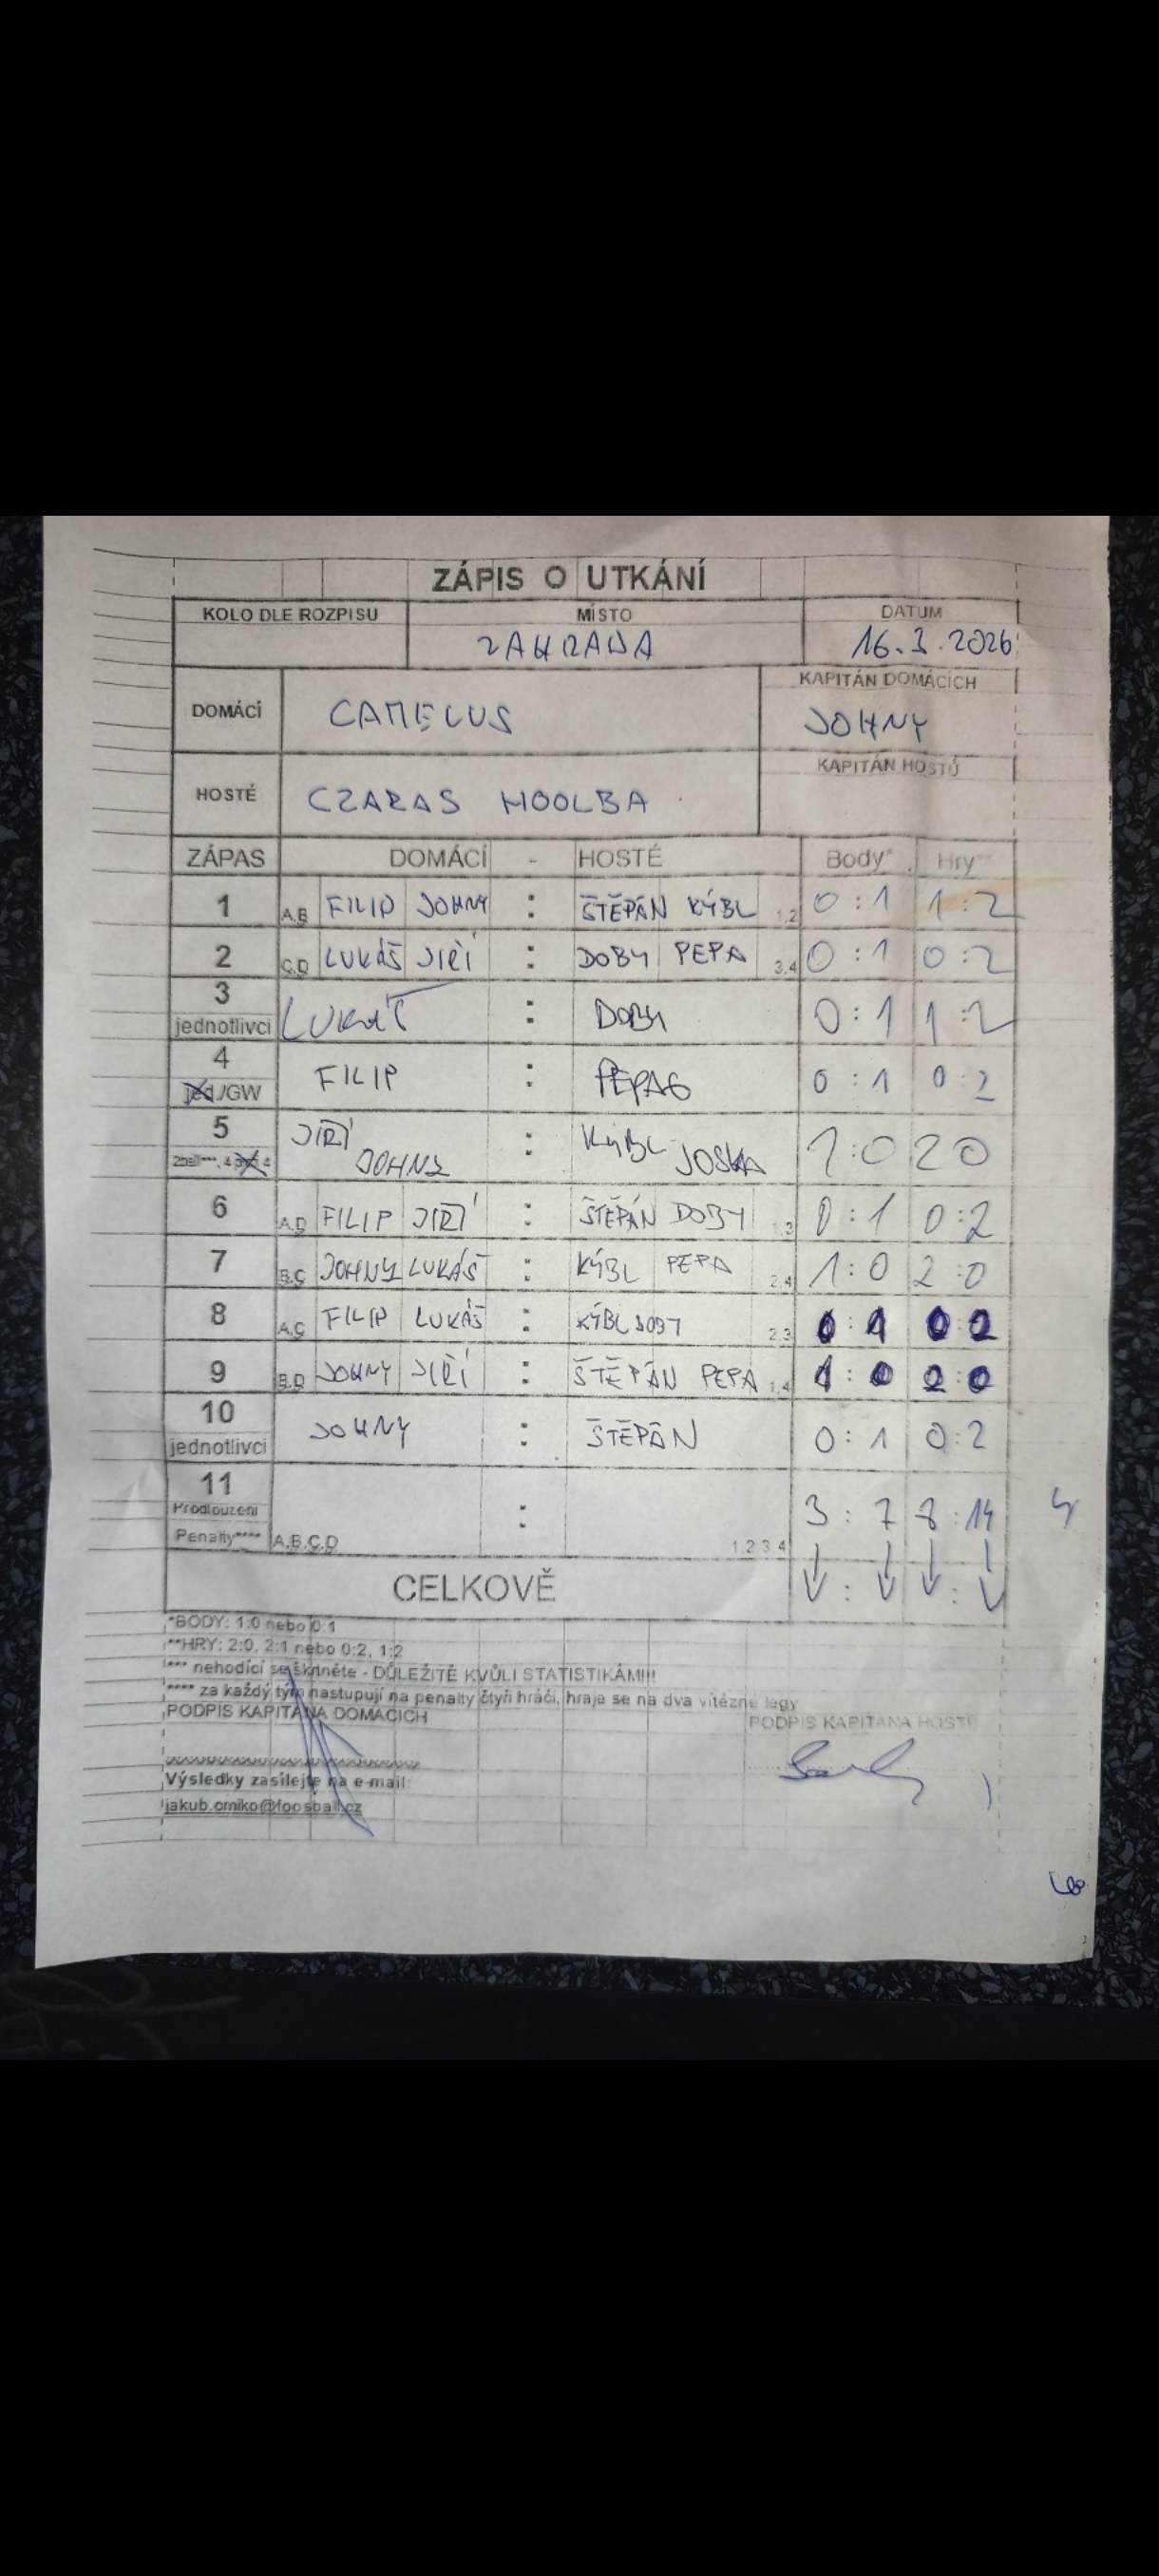 ZÁPIS O UTKÁNÍ
KOLO DLE ROZPISU MÍSTO DATUM
ZAHRADA 16.3.2026
DOMÁCÍ CAMELUS KAPITÁN DOMÁCÍCH
JOHNY
HOSTÉ CZARAS MOOLBA KAPITÁN HOSTŮ
ZÁPAS DOMÁCÍ - HOSTÉ Body* Hry**
1 A,B FILIP JOHNY : ŠTĚPÁN KÝBL 1,2 0:1 1:2
2 C,D LUKÁŠ JIŘÍ : DOBY PEPA 3,4 0:1 0:2
3 jednotlivci LUKÁŠ : DOBY 0:1 1:2
4 jed./GW FILIP : 0:1 0:2
5 2ball***, 4 JIŘÍ JOHNY : KÝBL JOSKA 1:0 2 0
6 A,D FILIP JIŘÍ : ŠTĚPÁN DOBY 1,3 0:1 0:2
7 B,C JOHNY LUKÁŠ : KÝBL PEPA 2,4 1:0 2:0
8 A,C FILIP LUKÁŠ : KÝBL DOBY 2,3 0:1 0:2
9 B,D JOHNY JIŘÍ : ŠTĚPÁN PEPA 1,4 1:0 2:0
10 jednotlivci JOHNY : ŠTĚPÁN 0:1 0:2
11 Prodloužení : 3:7 8:14
Penalty**** A,B,C,D 1 2 3 4
CELKOVĚ : :
*BODY: 1:0 nebo 0:1
**HRY: 2:0, 2:1 nebo 0:2, 1:2
*** nehodící se škrtněte - DŮLEŽITÉ KVŮLI STATISTIKÁM!!!
**** za každý tým nastupují na penalty čtyři hráči, hraje se na dva vítězné legy
PODPIS KAPITÁNA DOMÁCÍCH PODPIS KAPITÁNA HOSTŮ
Výsledky zasílejte na e-mail:
jakub.cmiko@foosball.cz